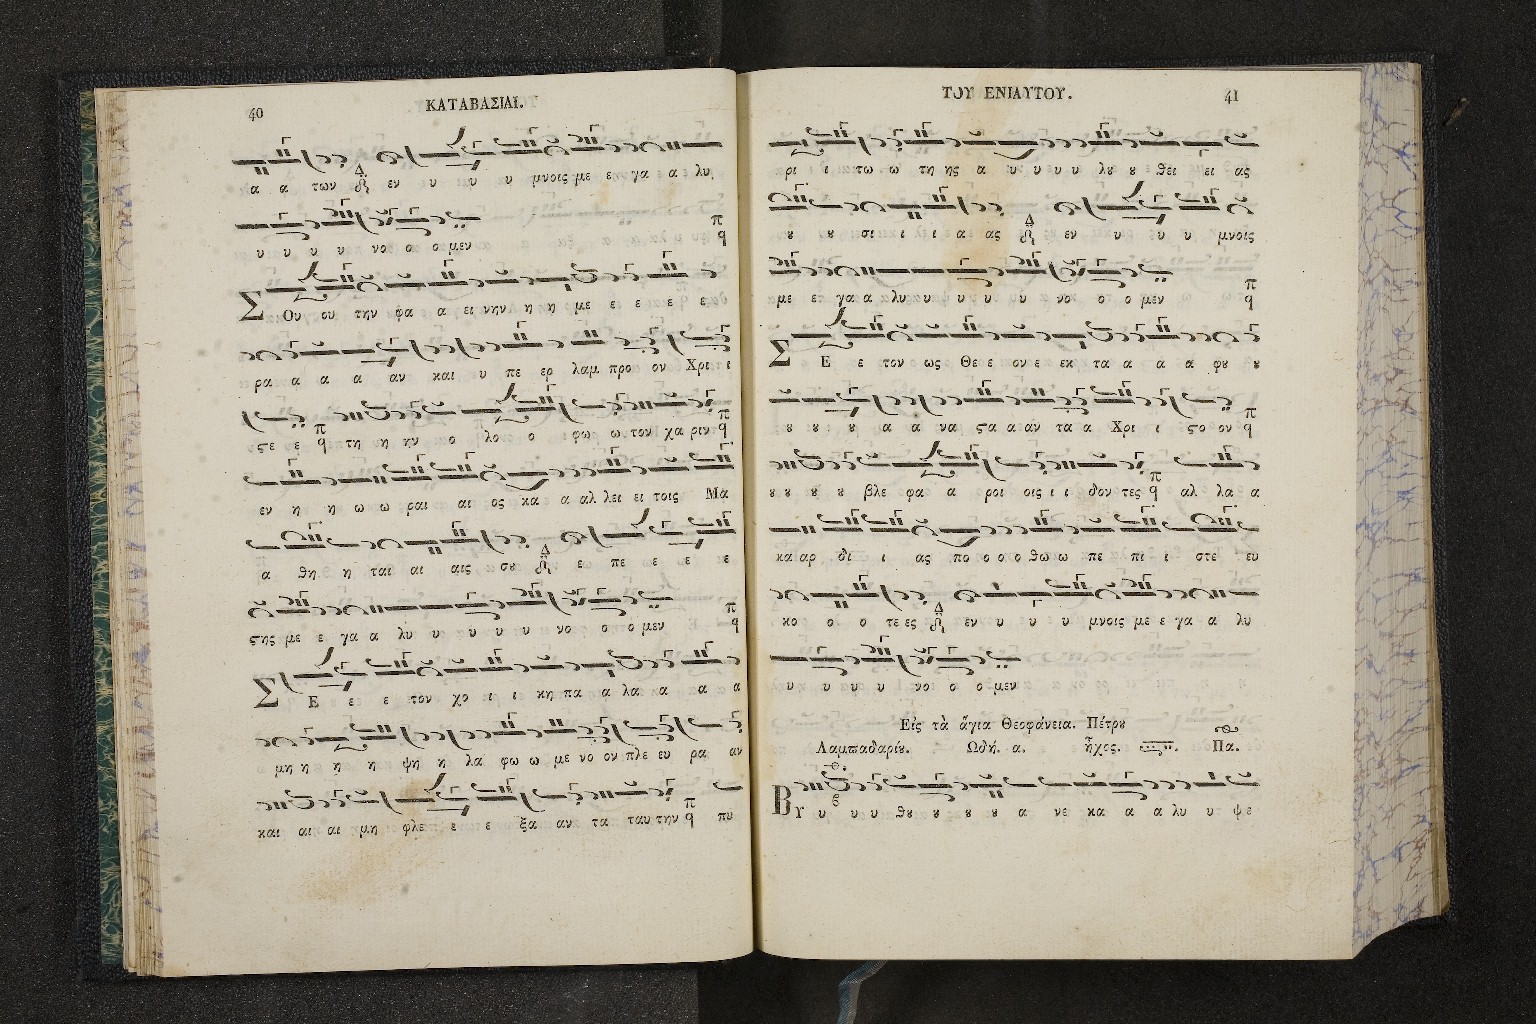 40
ΚΑΤΑΒΑΣΙΑΙ.
α α των εν υ υ υ μνοις με ε γα α λυ
υ υ υ υ νο ο ο μεν
Σ Ου ου την φα α ει νην η η με ε ε ε ε
ρα α α α αν και υ πε ερ λαμ προ ον Χρι ι
ϛε ε τη η ην ο λο ο φω ω τον χα ριν
εν η η ω ω ραι αι ος κα α αλ λει ει τοις Μα
α θη η ται αι αις σȣ ε πε ε ε ε
ϛης με ε γα α λυ υ υ υ υ υ νο ο ο μεν
Σ Ε ε ε τον χο ι ι κη πα α λα α α α
μη η η η ψη η λα φω ω με νο ον πλε ευ ρα αν
και αι αι μη φλε ε ε ξα αν τα ταυ την πυ
ΤΟΥ ΕΝΙΑΥΤΟΥ.
41
ρι ι ι τω ω τη ης α υ υ υ υ λȣ ȣ θει ει ας
ȣ ȣ σι ι ι ι α ας εν υ υ υ μνοις
με ε γα α λυ υ υ υ υ υ νο ο ο μεν
Σ Ε ε τον ως Θε ε ον ε εκ τα α α α φȣ ȣ
ȣ ȣ ȣ α α να ϛα α αν τα α Χρι ι ϛο ον
ȣ ȣ ȣ ȣ βλε φα α ροι οις ι ι δον τες αλ λα α
κα αρ δι ι ας πο ο ο ο θω ω πε πι ι στε ευ
κο ο ο τε ες εν υ υ υ μνοις με ε γα α λυ
υ υ υ υ νο ο ο μεν
Εἰς τὰ ἅγια Θεοφάνεια. Πέτρȣ
Λαμπαδαρίȣ. Ωδή. α. ἦχος. Πα.
Β Υ υ υ υ θȣ ȣ ȣ ȣ α νε κα α α λυ υ ψε